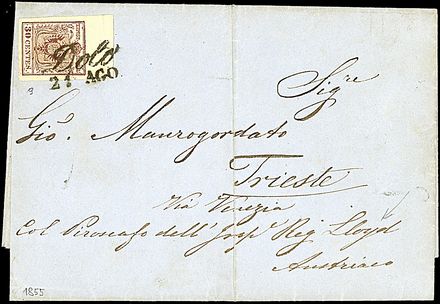 30 CENTES.
Dolo
21 AGO.
Sig.re
Gio. Maurogordato
Trieste
Via Venezia
Col Piroscafo dell' Imp. Reg. Lloyd
Austriaco
1855